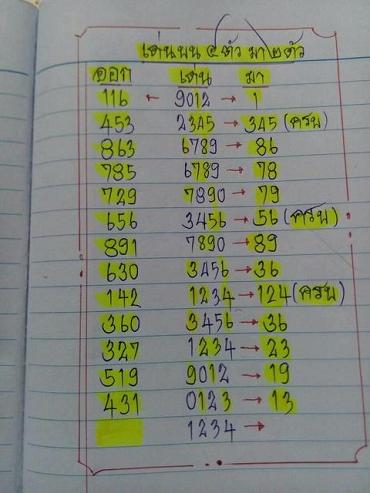 เด่นบน ๔ ตัว มา ๒ ตัว
ออก เด่น มา
116 ← 9012 → 1
453 2345 → 345 (ครบ)
863 6789 → 86
785 6789 → 78
729 7890 → 79
656 3456 → 56 (ครบ)
891 7890 → 89
630 3456 → 36
142 1234 → 124 (ครบ)
360 3456 → 36
327 1234 → 23
519 9012 → 19
431 0123 → 13
1234 →